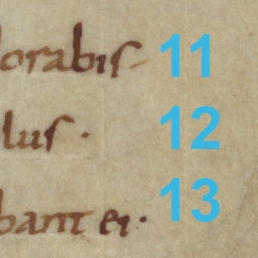 lorabis 11
lus · 12
bant ei · 13